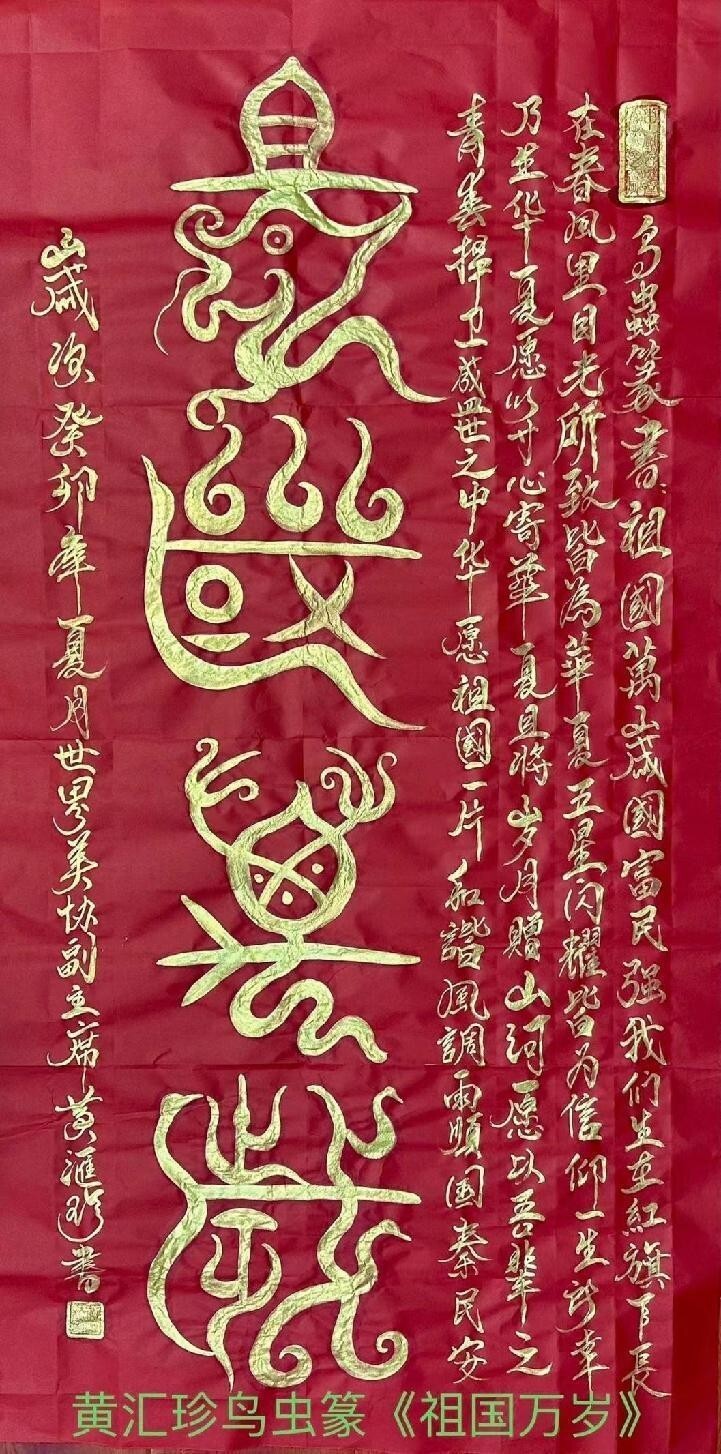 鸟蟲篆書:祖國萬歲國富民强我们生在紅旗下長
在春風里目光所致皆為華夏五星闪耀皆为信仰一生所幸
乃生华夏愿以寸心寄華夏且将岁月赠山河愿以吾辈之
青春捍卫盛世之中华愿祖國一片和諧風調雨順国泰民安
祖國萬歲
歲次癸卯年夏月世界美协副主席黄滙珍書
黄汇珍鸟虫篆《祖国万岁》